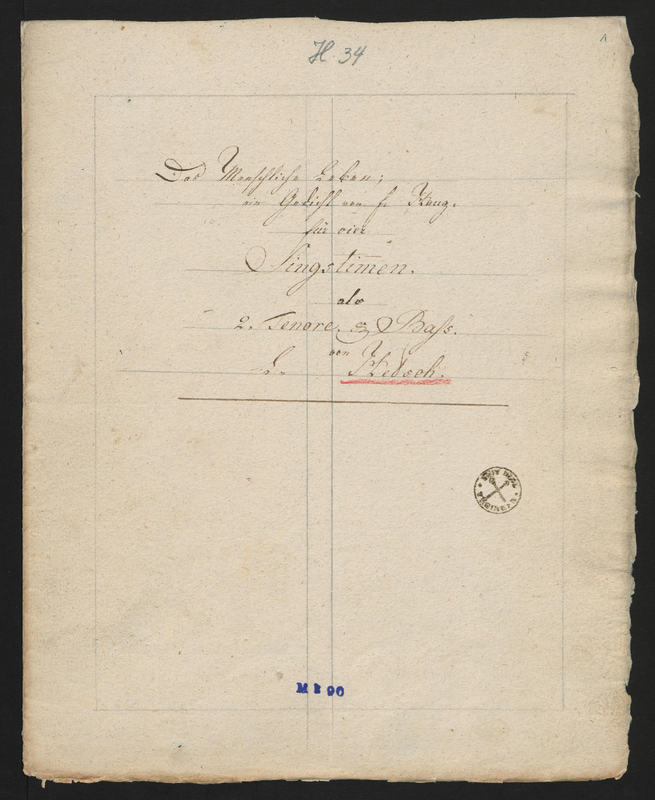 H 34
1
Das Menschliche Leben;
ein Gedicht von fr. Haug.
für vier
Singstim̄en.
als
2. Tenore, & 2 Bass.
von
L. Hetsch.
M B 90